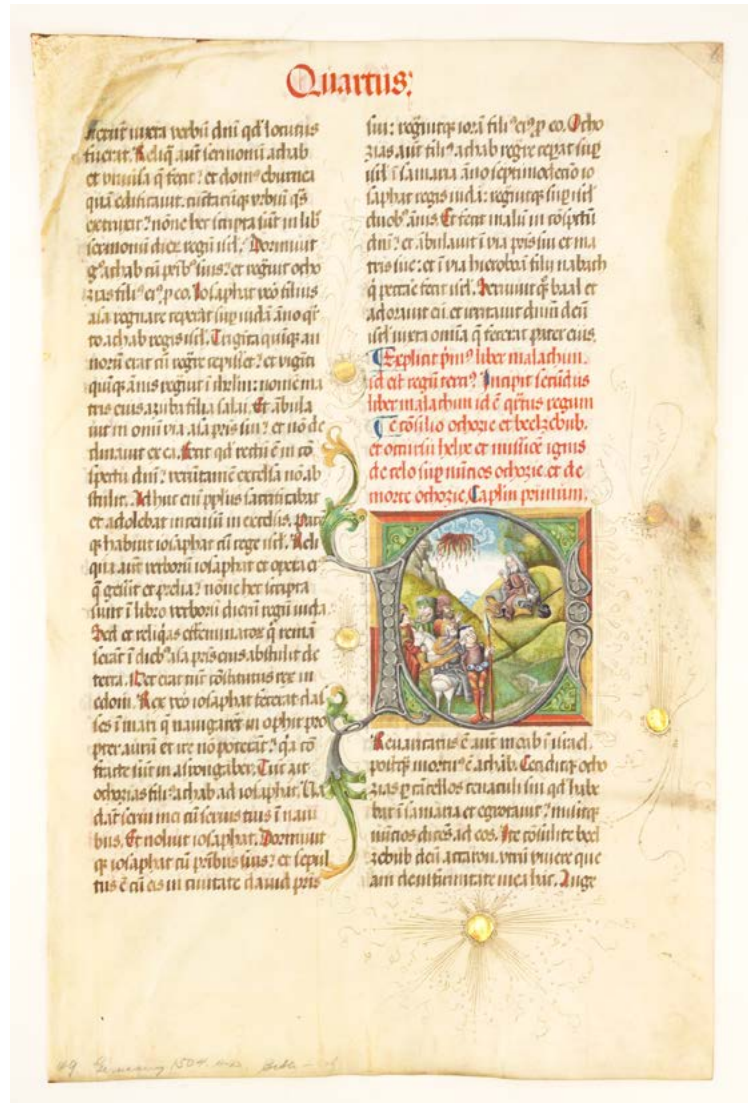 Quartus:
rerunt iuxta verbū dnī qd' locutus
fuerat. Reliq̄ aut̄ sermonū achab
et vniūsa q̄ fecit: et domꝰ eburnea
quā edificauit. cūctarūq; vrbiū q̄s
extruxit: nōne hec scripta sūt in lib̄
sermonū dierꝝ regū isrl'. Dormiuit
gͦ achab cū pr̄ibꝰ suis: et regͣuit ocho
zias filiꝰ eiꝰ ꝑ eo. Iosaphat vēo filius
asa regnare ceperat suꝑ iudā āno qͣr
to achab regis isrl'. Triginta quinq; an
norū erat cū regͣre cepisset: et vigīti
quīq; ānis regͣuit ī ihrl'm: nomē ma
tris eius azuba filia salai. Et ābula
uit in omni via asa pris sui: et nō de
clinauit ex ea. Fecit qd' rectū ē in cō
spectu dnī: verūtamē excelsa nō ab
stulit. Adhuc enī ppl'us sacrificabat
et adolebat incensū in excelsis. pacē
q; habuit iosaphat cū rege isrl'. Reli
qua aut̄ verborū iosaphat et opera eiꝰ
q̄ gessit et prelia: nōne hec scripta
sunt ī libro verborū dierū regū iuda.
Sed et reliq̄as effeminatorꝝ q̄ reman
serāt ī diebꝰ asa pris eius abstulit de
terra. Nec erat tūc cōstitutus rex in
edom. Rex vēo iosaphat fecerat clas
ses ī mari q̄ nauigarēt in ophir pro
pter aurū et ire nō poterāt: qͣ cō
fracte sūt in asiongaber. Tūc ait
ochozias filiꝰ achab ad iosaphat. Va
dāt serui mei cū seruis tuis ī naui
bus. Et noluit iosaphat. Dormiuit
q; iosaphat cū pr̄ibus suis: et sepul
tus ē cū eis in ciuitate dauid pris
sui: regͣuitq; iorā filiꝰ eiꝰ ꝑ eo. Ocho
zias aut̄ filiꝰ achab regͣre ceperat suꝑ
isrl' ī samaria āno septimodecimo io
saphat regis iuda: regͣuitq; suꝑ isrl'
duobꝰ ānis. Et fecit malū in cōspectu
dnī: et ābulauit ī via pris sui et ma
tris sue: et ī via hieroboā filij nabath
q̄ peccare fecit isrl'. Seruiuit q̄; baal et
adorauit eū et irritauit dnm̄ deū
isrl' iuxta omīa q̄ fecerat pater eius.
Explicit pm̄ꝰ liber malachim.
id est regū terciꝰ. Incipit secūdus
liber malachim id ē q̄rtus regum
De cōsilio ochozie et beelzebub.
et occursu helye et missiōe ignis
de celo suꝑ nūcios ochozie. et de
morte ochozie. Caplm̄ primum.
Reuaricatus ē aut̄ moab ī israel.
postq̄ mortuꝰ ē achab. Ceciditq; ocho
zias ꝑ cācellos cenaculi sui qd' habe
bat ī samaria et egrotauit: misitq;
nūcios dicēs ad eos. Ite cōsulite beel
zebub deū accaron. vtrū viuere que
am de infirmitate mea hac. Ange
49 Germany 1504